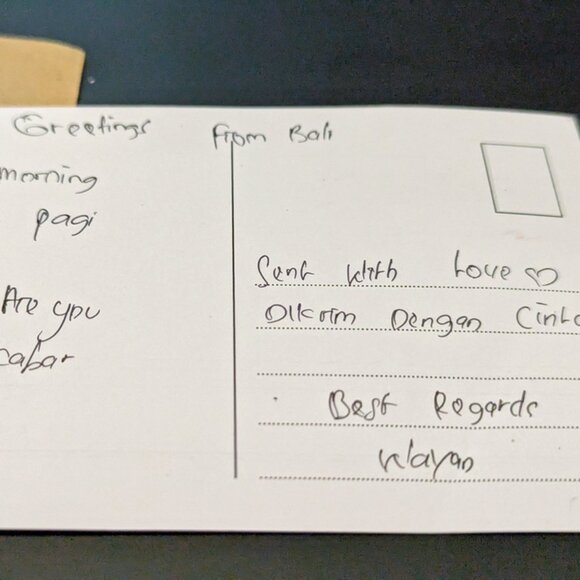 Greetings from Bali
morning
pagi
Are you
cabar
Sent with Love ♡
Dikirim Dengan
Best Regards
Wayan